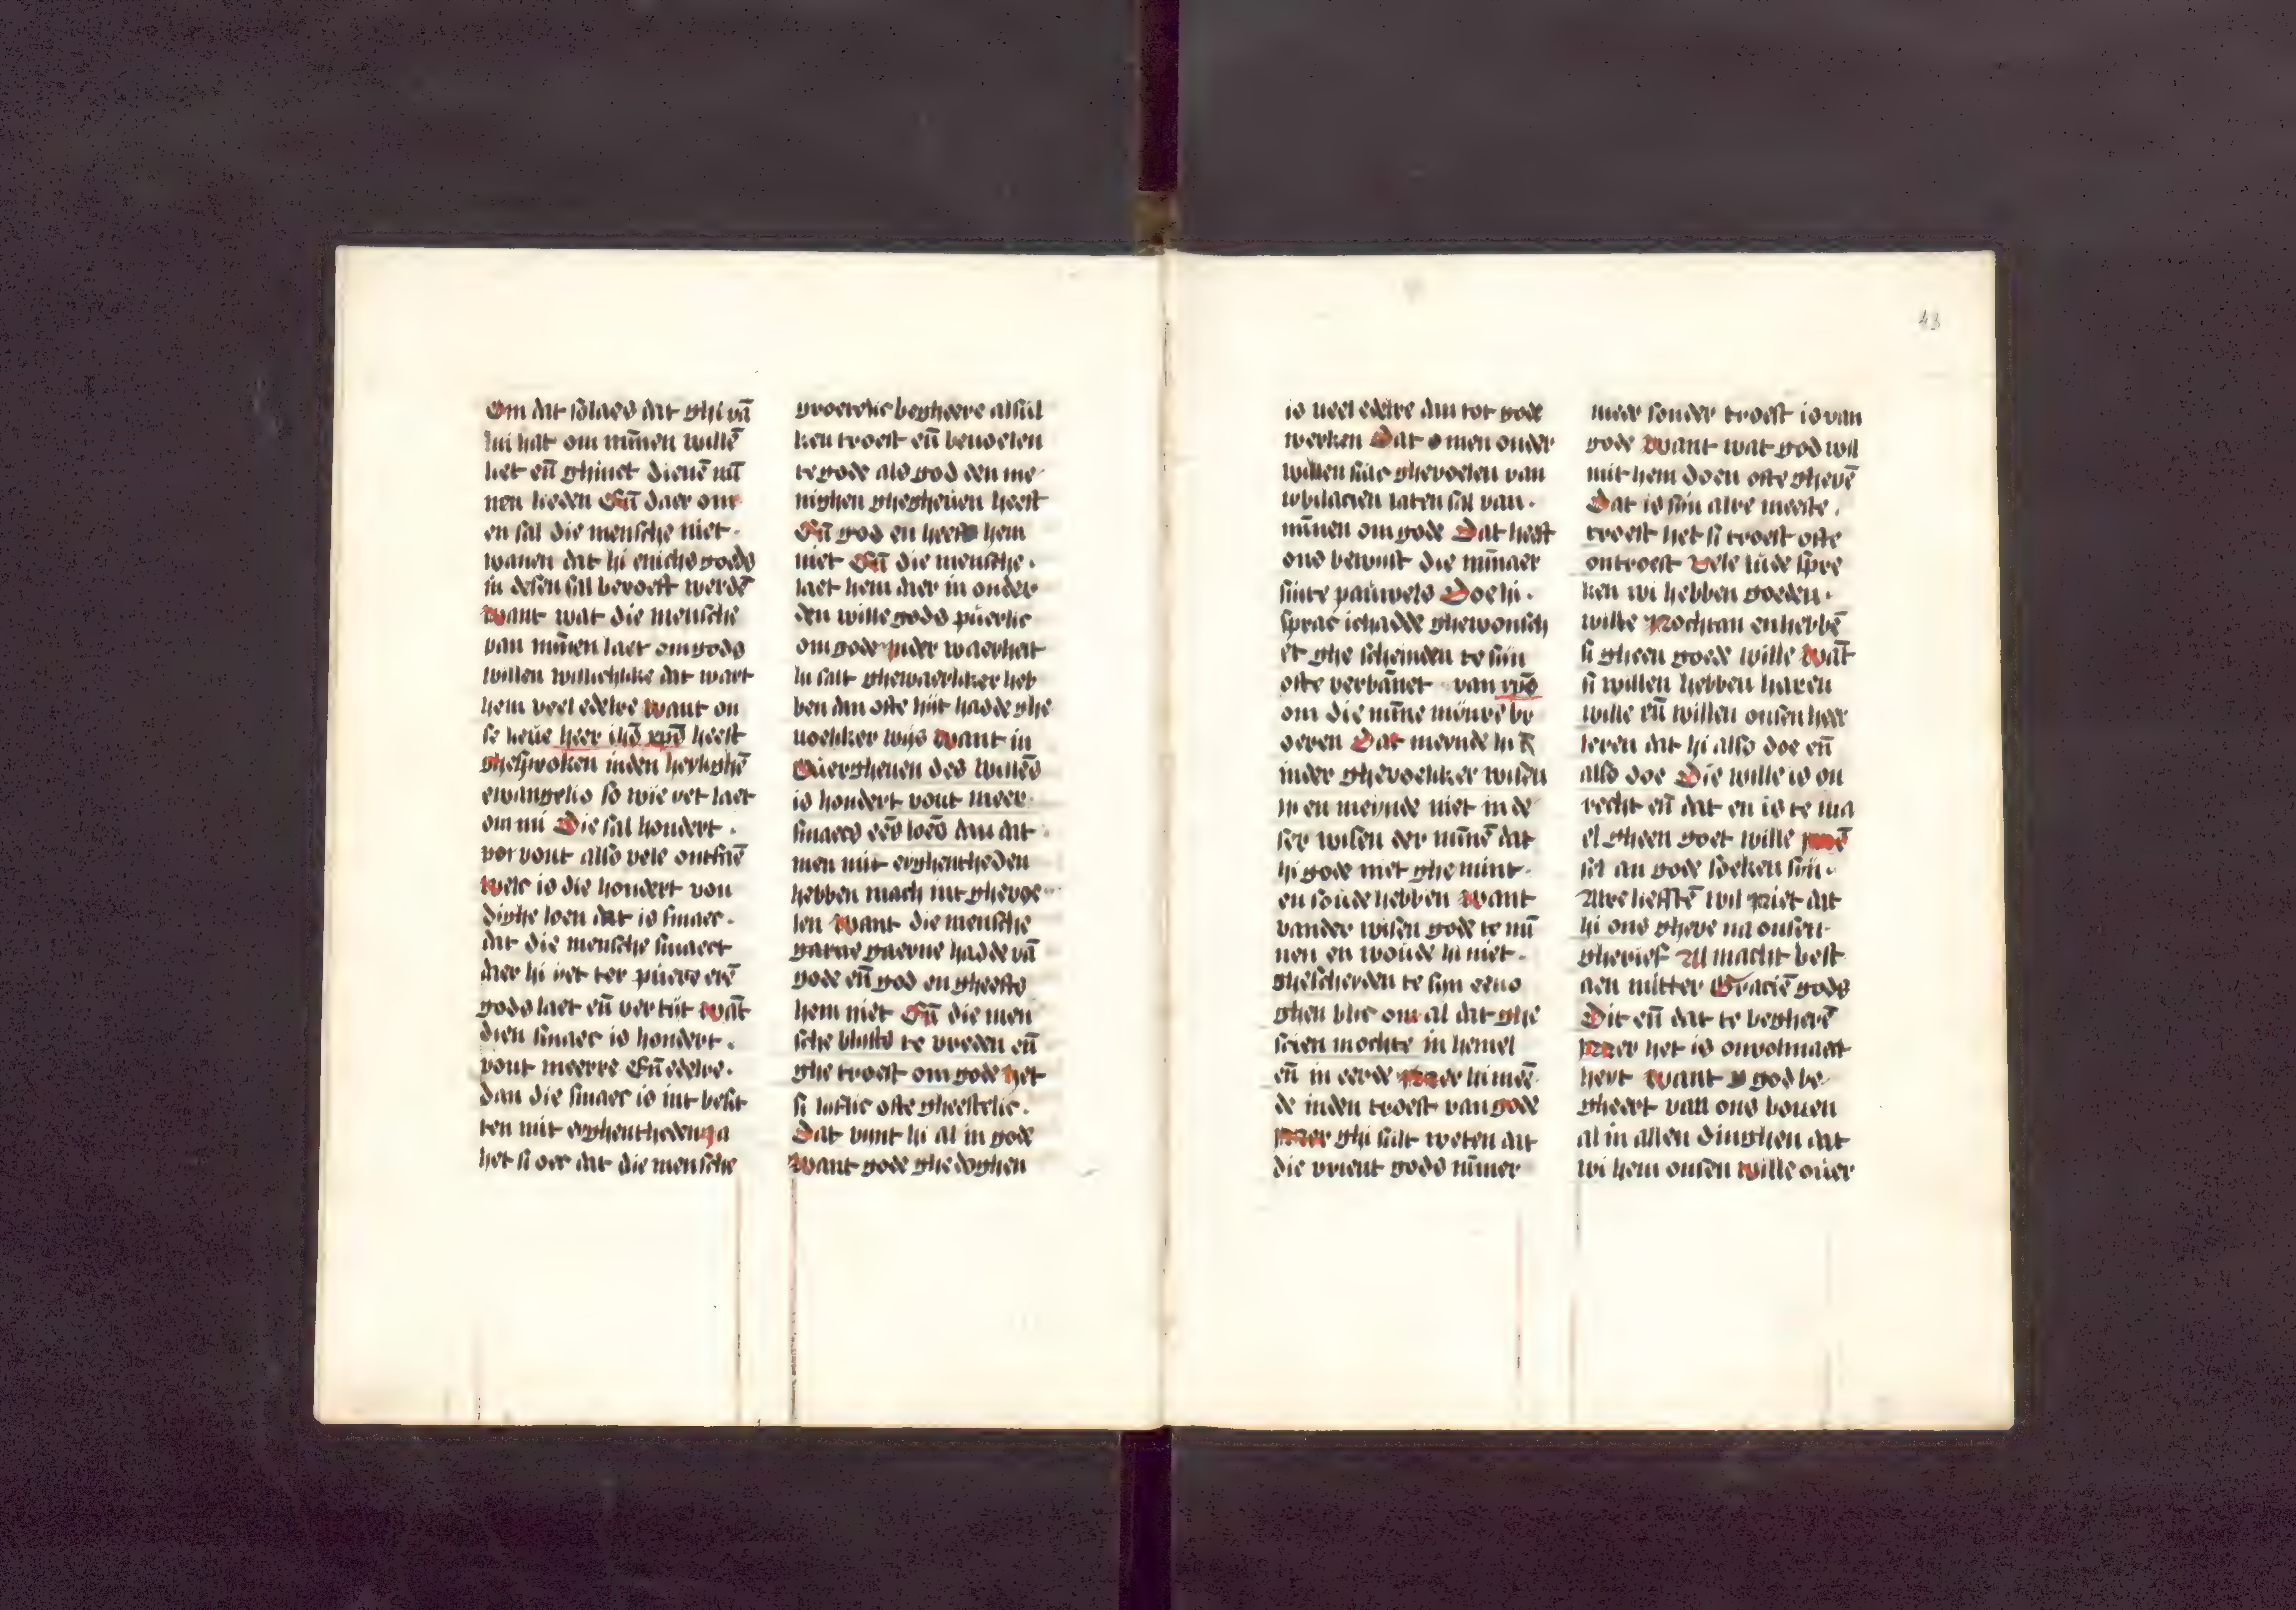 Om dat solaes dat ghi vā
lui hat om minen willē
liet eñ ghinct dienē mī
nen lieden Eñ daer om
en sal die mensche niet
wanen dat hi enichs goeds
in desen sal beroeft werdē
Want wat die mensche
van mīnen laet om gods
willen willichlike dat wart
hem veel edelre Want on
se lieue heer ihs xps heeft
ghesproken inden heylighē
ewangelio so wie yet laet
om mi Die sal hondert
vor vout also vele ontfaē
Welc is die hondert vou
dighe loen dat is smaec
dat die mensche smaect
daer hi yet ter puere erē
gods laet eñ vertijt Wāt
dien smaec is hondert
vout meerre Eñ edelre
dan die smaec is int besit
ten mit eyghentheden Ja
het si oec dat die mensche
groetelic begheere alsul
ken troest eñ bevoelen
te gode als god den me
nighen ghegheuen heeft
Eñ god en heefts hem
niet Eñ die mensche
laet hem daer in onder
den wille gods puerlic
om gode Inder waerheit
hi salt ghewaerliker heb
ben dan ofte hijt hadde ghe
uoeliker wijs Want in
Ouergheuen des willēs
is hondert vout meer
smaecs eēs loēs dan dat
men mit eyghentheden
hebben mach int ghevoe
len Want die mensche
gaerne hadde vā
gode eñ god en gheefts
hem niet Eñ die men
sche blijfts te vreden eñ
ghe troest om gode Het
si lijflic ofte gheestelic
Dat vynt hi al in gode
Want gode ghedoghen
is veel edelre dan tot gode
werken Dat men onder
willen sulc ghevoelen van
iubilacien laten sal van
mīnen om gode Dat heeft
ons bewijst die mīnaer
sinte pauwels Doe hi
sprac ic hadde ghewonsch
et ghe scheiden te sijn
ofte verbānet van xpo
om die mīne mijnre br
oeren Dat meynde hi
inder ghevoeliker wisen
hi en meynde niet in de
ser wisen der mīnē dat
hi gode niet ghemint
en soude hebben Want
vander wisen gode te mī
nen en woude hi niet
ghescheyden te sijn eens
ghen blic om al dat ghe
scien mochte in hemel
eñ in eerde Mer hi meē
de inden troest van gode
Mer ghi sult weten dat
die vrient gods nīmer
meer sonder troest is van
gode Want wat god wil
mit hem doen ofte ghevē
Dat is sijn alre meeste
troest het si troest ofte
ontroest Vele lude spre
ken wi hebben goeden
wille Nochtan en hebbē
si gheen goede wille Wāt
si willen hebben haren
wille eñ willen onsen heer
leren dat hi also doe eñ
also doe Die wille is on
recht eñ dat en is te ma
el gheen goet wille
sel an gode soeken sijn
Alre lieftē wil Niet dat
hi ons gheve na onsen
gherief Al macht best
aen mitter Graciē gods
Dit eñ dat te begherē
Mer het is onvolmaect
heyt Want god be
gheert van ons bouen
al in allen dinghen dat
wi hem onsen Wille ouer
43